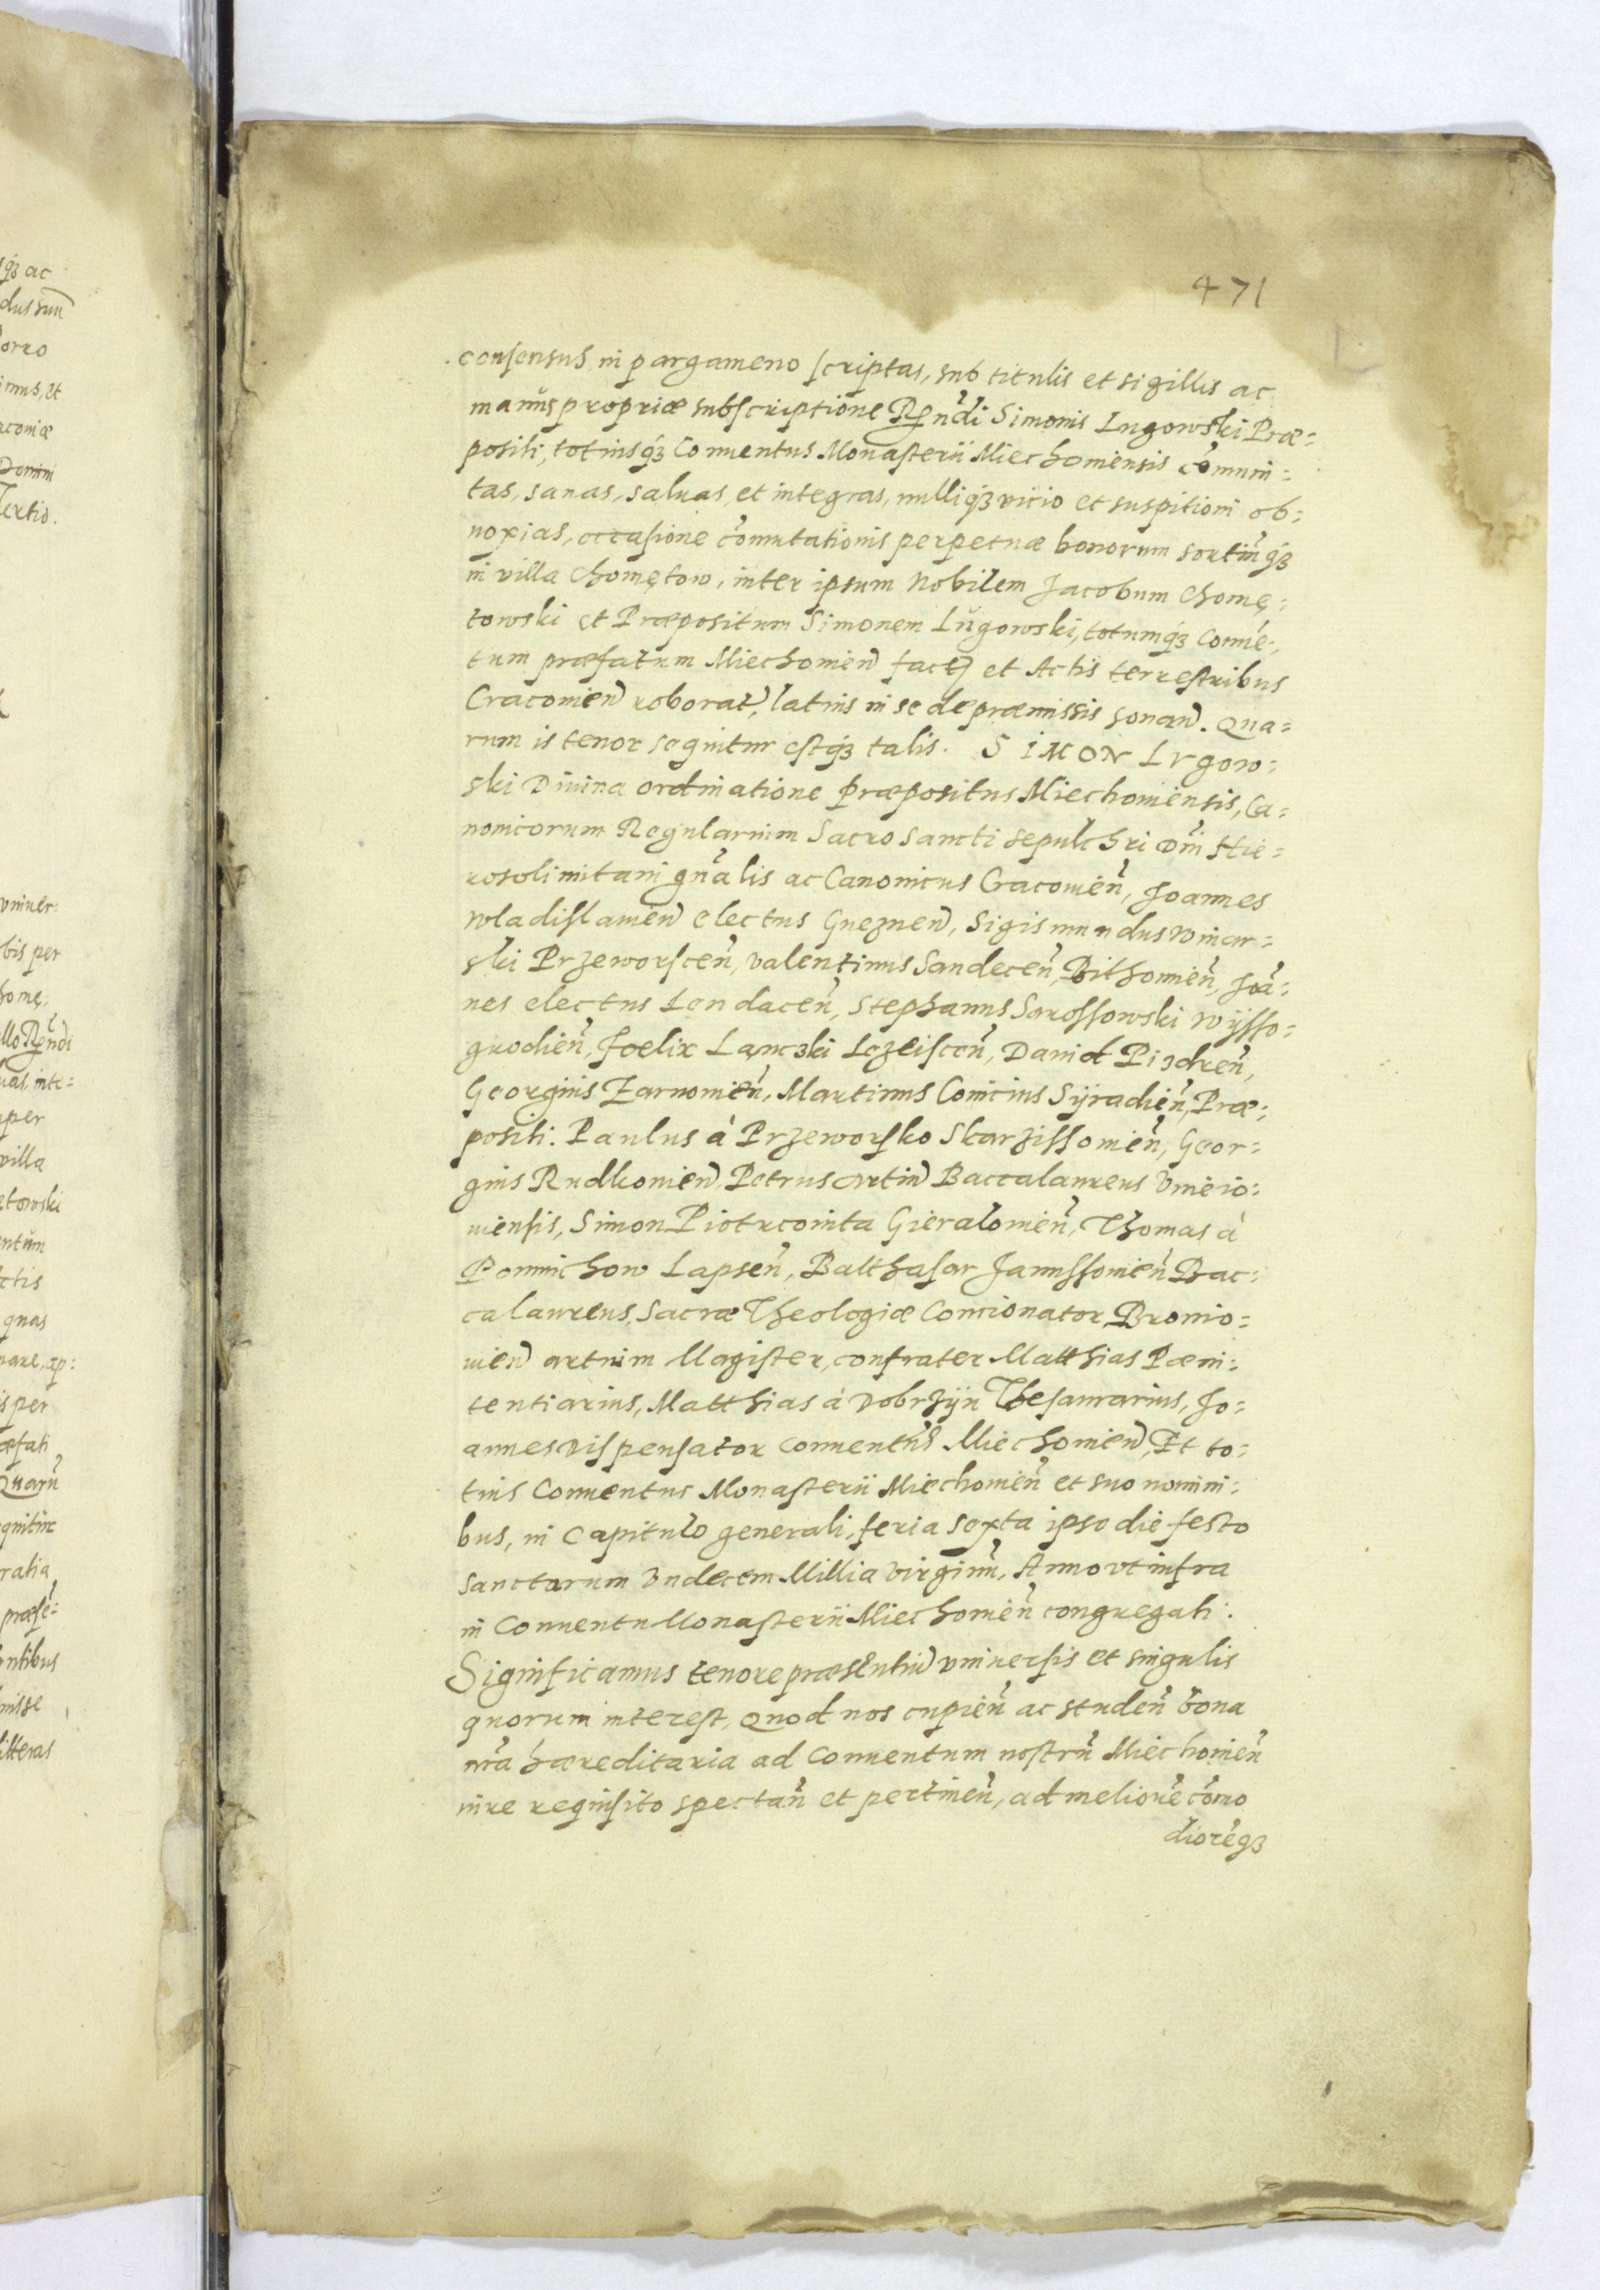 471
consensus in pargameno scriptas, sub titulis et sigillis ac
manus propriæ subscriptione Rṇdi Simonis Lugowski Præ=
positi, totiusq́ꝫ Conuentus Monasterii Miechouiensis com̃uni=
tas, sanas, saluas, et integras, nulliq́ꝫ vicio et suspitioni ob=
noxias, occasione com̃utationis perpetuæ bonorum sortiũq́ꝫ
in villa Chomętow, inter ipsum Nobilem Jacobum Chomę=
towski et Præpositum Simonem Lugowski, totumq́ꝫ Conuẽ=
tum præfatum Miechouien̄ fact̄ et Actis terrestribus
Cracouien̄ roborat̄, latius in se de præmissis sonan̄. Qua=
rum is tenor sequitur estq́ꝫ talis. SIMON LVgow=
ski Diuina ordinatione præpositus Miechouiensis, Ca=
nonicorum Regularium Sacrosancti sepulchri Dn̄i Hie=
rosolimitani gn̄alis ac Canonicus Cracouien̄, Joannes
Wladislauien̄ electus Gneznen̄, Sigismundus Winar=
ski Przeworscen̄, Valentinus Sandecen̄, Bithomien̄, Joã=
nes electus Lendacen̄, Stephanus Sarossowski Wysso=
grodien̄, Foelix Lanczki Lezeiscen̄, Daniel Pizdren̄,
Georgius Zarnouien̄, Martinus Conicius Syradien̄, Præ=
positi. Paulus à Przeworsko Skarzissouien̄, Geor=
gius Rudkouien̄, Petrus artiũ Baccalaureus Vnieio=
uiensis, Simon Piotrcouita Gieraltouien̄, Thomas à
Pomnichow Lapsen̄, Balthasar Janussouien̄ Bac=
calaureus, Sacræ Theologiæ Concionator, Bronio=
uien̄ artium Magister, confrater Matthias Pœni=
tentiarius, Matthias à Dobrzyn Thesaurarius, Jo=
annes Dispensator conuentus Miechouien̄, Et to=
tius Conuentus Monasterii Miechouien̄ et suo nomini=
bus, in Capitulo generali, feria sexta ipso die festo
sanctarum Vndecem Millia Virginũ, Anno vt infra
in Conuentu Monasterii Miechouien̄ congregati.
Significamus tenore præsentiũ vniuersis et singulis
quorum interest, quod nos cupien̄ ac studen̄ bona
nr̃a hæreditaria ad Conuentum nostrũ Miechouien̄
iure requisito spectan̄ et pertinen̄, ad meliorẽ com̃o
diorẽqꝫ